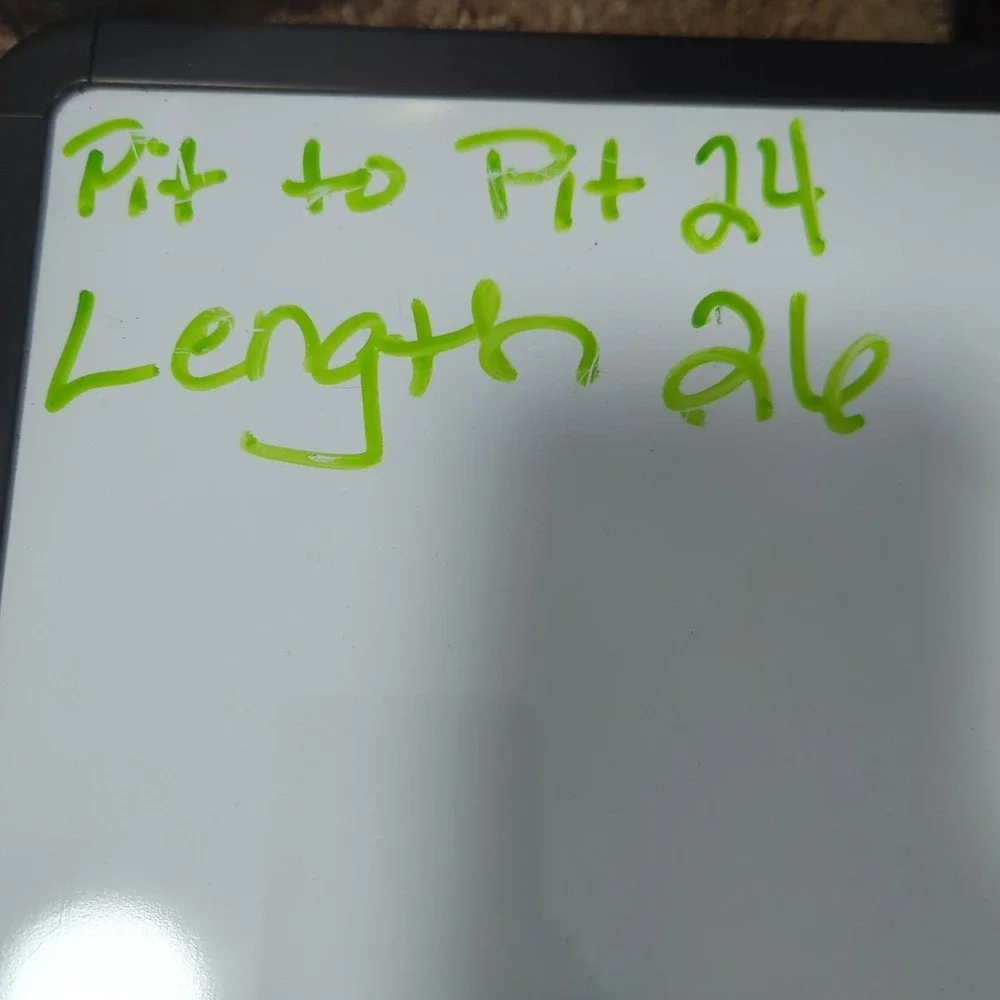 Pit to Pit 24
Length 26